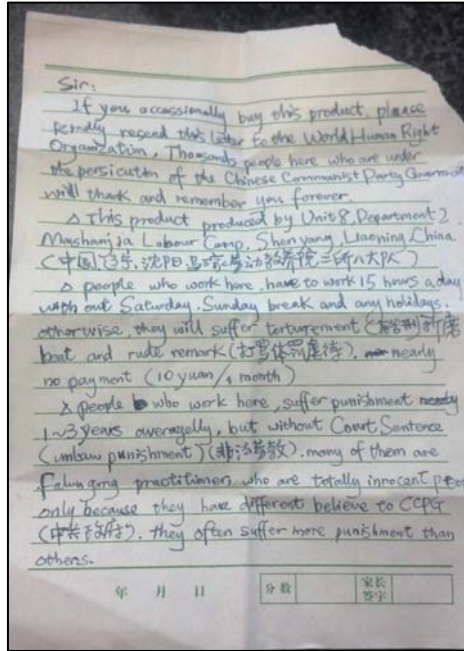 Sir:
If you accassionally buy this product, please
kendly resend this letter to the World Human Right
Organization. Thousands people here who are under
the persicution of the Chinese Communist Party Government
will thank and remember you forever.
△ This product produced by Unit 8, Department 2,
Mashanjia Labour Camp, Shenyang, Liaoning, China.
(中国,辽宁,沈阳,马三家劳动教养院二所八大队)
△ people who work here, have to work 15 hours a day
with out Saturday, Sunday break and any holidays.
otherwise, they will suffer torturement (折磨)
beat and rude remark (打骂体罚虐待). nearly
no payment (10 yuan/1 month)
△ people who work here, suffer punishment
1~3 years averagelly, but without Court Sentence
(unlaw punishment) (非法劳教). many of them are
Falungong practitioner, who are totally innocent
only because they have different believe to CCPG
(中共政府). they often suffer more punishment than
others.
年 月 日 分数 家长签字